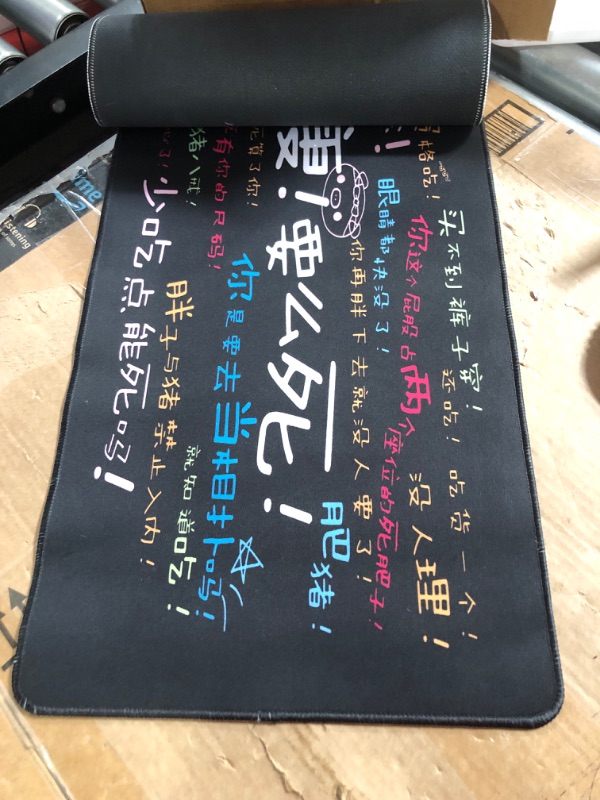 买不到裤子穿!
还吃! 吃货一个!
吃!
没人理!
你这个屁股占两个座位的死肥子!
眼睛都快没了!
你再胖下去就没人要了!
肥猪!
! 要么死!
算了你!
你是要去当相扑吗!
有你的尺码!
猪八戒!
就知道吃!
胖子与猪禁止入内!
了!
少吃点能死吗!
listening